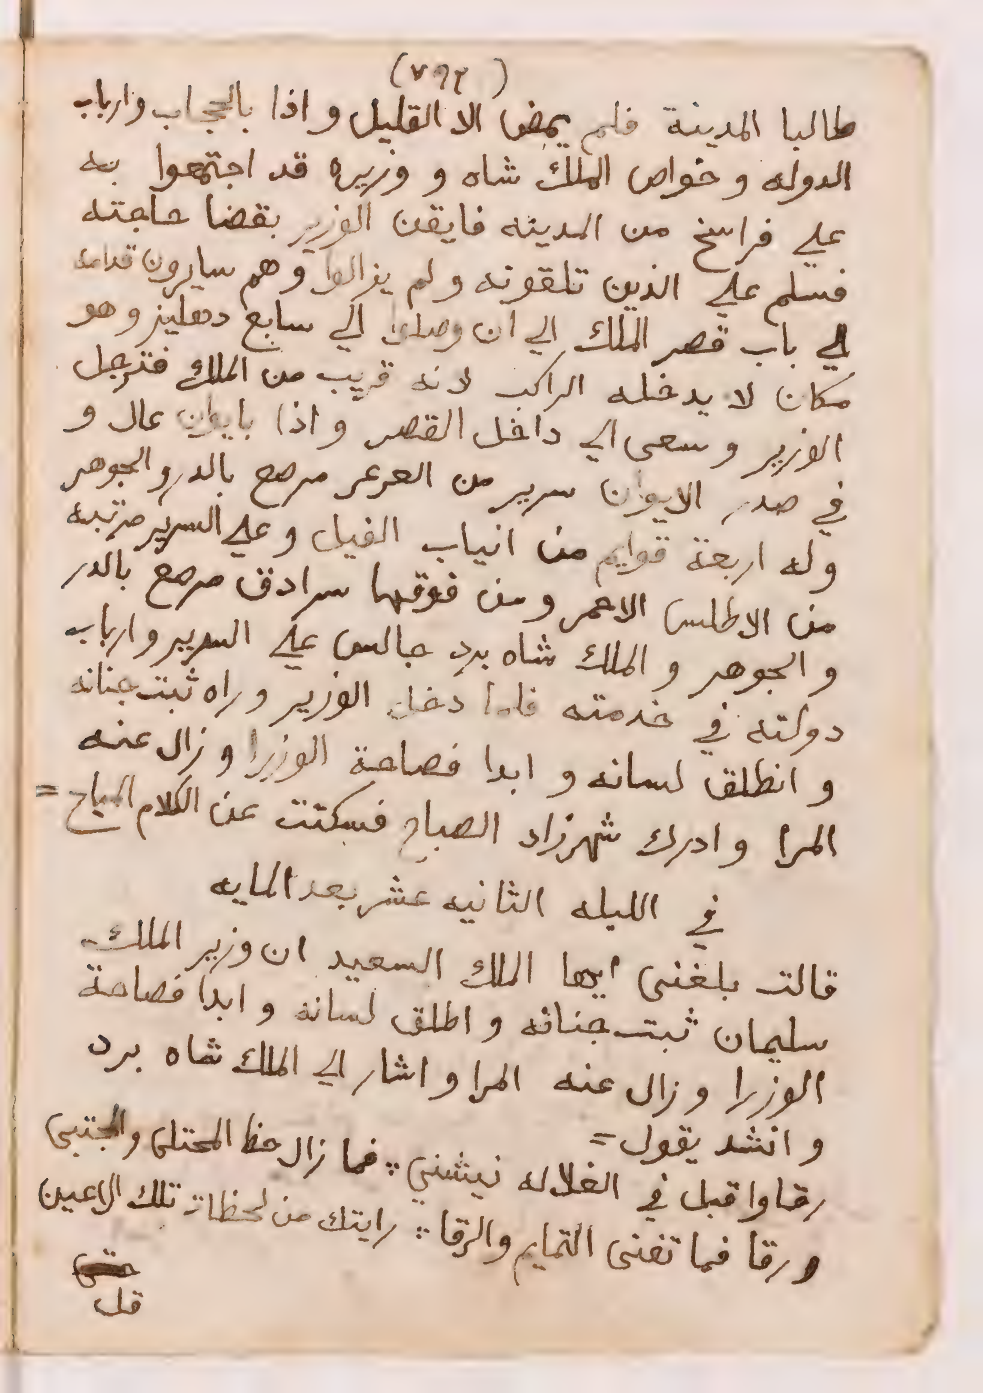 (٧٩٣)
طالبا المدينة فلم يمض الا القليل و اذا بالحجاب وارباب
الدوله و خواص الملك شاه و وزيره قد اجتمعوا به
علي فراسخ من المدينه فايقن الوزير بقضا حاجته
فسلم علي الذين تلقونه و لم يزالوا و هم سايرون قدامه
الي باب قصر الملك الي ان وصلوا الي سابع دهليز و هو
مكان لا يدخله الراكب لانه قريب من الملك فترجل
الوزير و سعى الي داخل القصر و اذا بايوان عال و
في صدر الايوان سرير من العرعر مرصع بالدر والجوهر
وله اربعة قوايم من انياب الفيل و علي السرير مرتبه
من الاطلس الاحمر و من فوقها سرادق مرصع بالدر
و الجوهر و الملك شاه برد جالس علي السرير و ارباب
دولته في خدمته فلما دخل الوزير و راه ثبت جنانه
و انطلق لسانه و ابدا فصاحة الوزرا و زال عنه
المرا و ادرك شهرزاد الصباح فسكتت عن الكلام المباح =
في الليله الثانيه عشر بعد المايه
قالت بلغنى ايها الملك السعيد ان وزير الملك
سليمان ثبت جنانه و اطلق لسانه و ابدا فصاحة
الوزرا و زال عنه المرا و اشار الي الملك شاه برد
و انشد يقول =
رقا واقبل في الغلاله نيشني ؞ فما زال حظ المحتلى والمجتبى
ورقا فما تغنى التمايم والرقا ؞ رايتك من لحظات تلك الاعين
قل